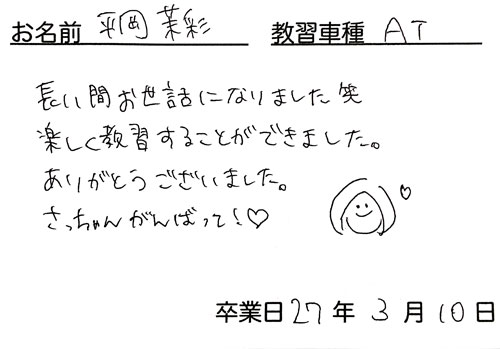 お名前 平岡 茉彩 教習車種 AT
長い間お世話になりました 笑
楽しく教習することができました。
ありがとうございました。
さっちゃんがんばって!♡
♡
卒業日 27 年 3 月 10 日